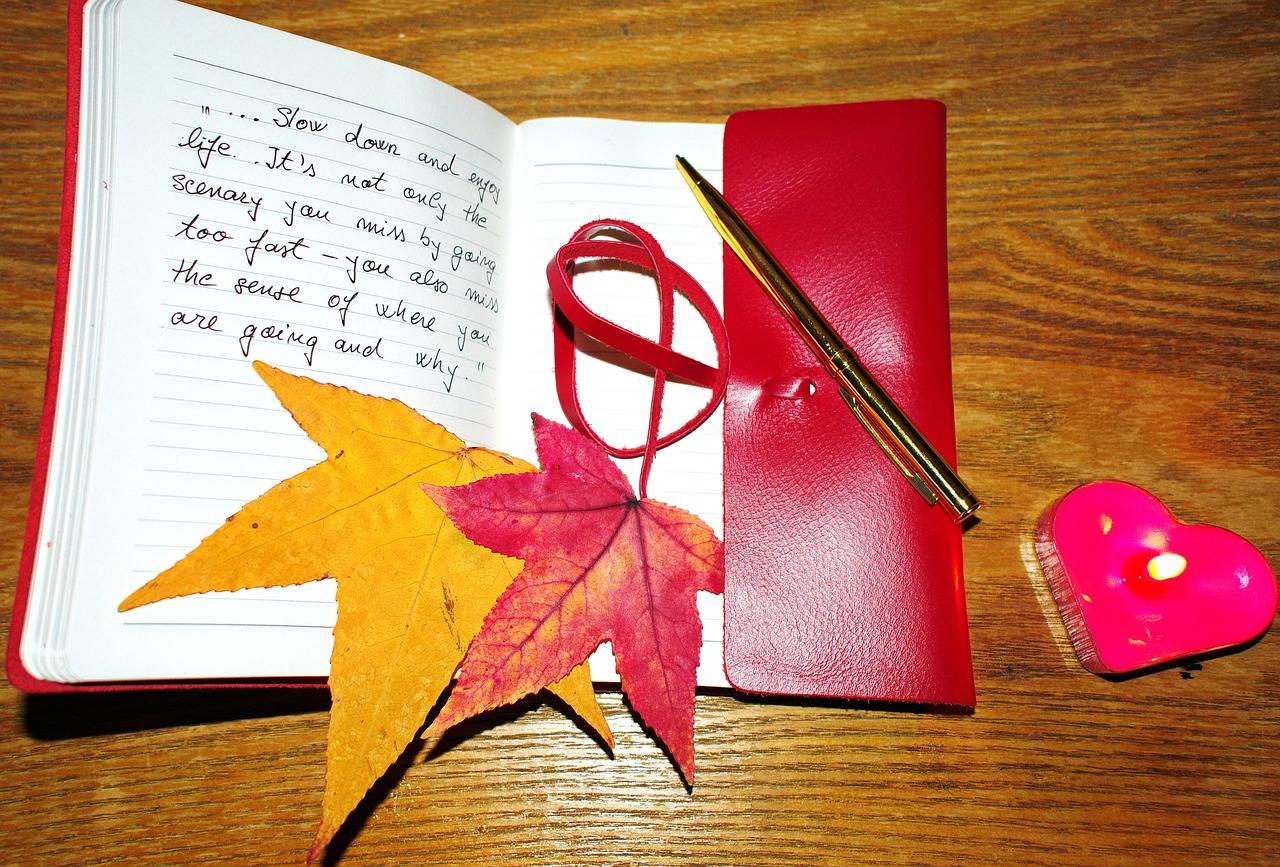 "... Slow down and enjoy
life. .It's not only the
scenary you miss by going
too fast – you also miss
the sense of where you
are going and why."